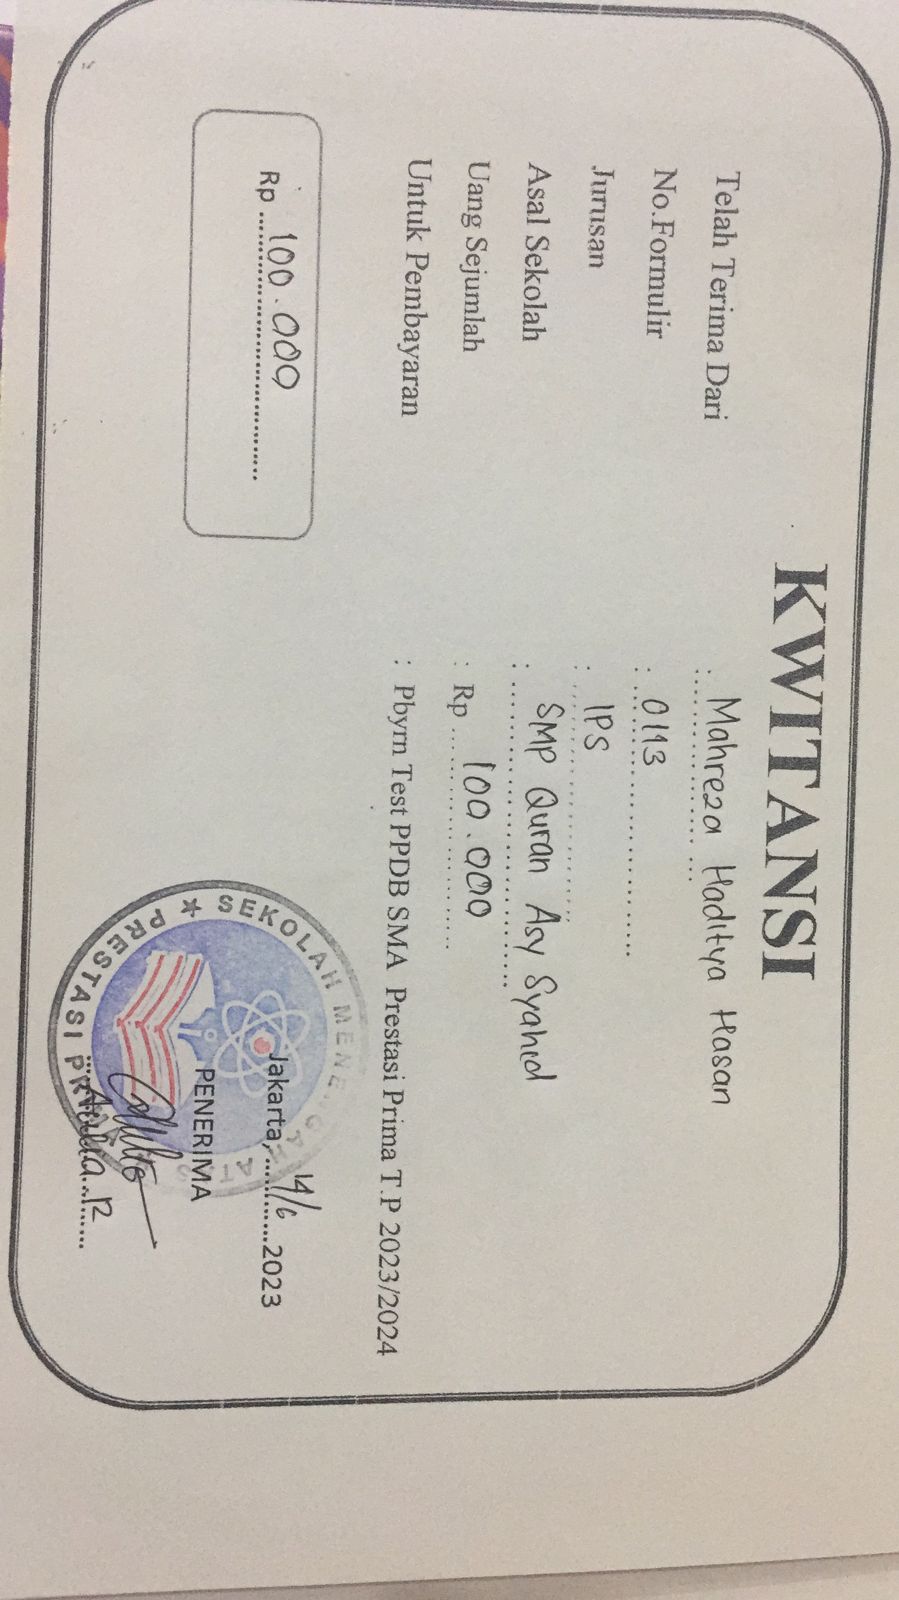 KWITANSI
Telah Terima Dari : Mahreza Haditya Hasan
No.Formulir : 0113
Jurusan : IPS
Asal Sekolah : SMP Quran Asy Syahid
Uang Sejumlah : Rp 100.000
Untuk Pembayaran : Pbyrn Test PPDB SMA Prestasi Prima T.P 2023/2024
Rp 100.000
Jakarta, 14/6 2023
PENERIMA
SEKOLAH MENENGAH ATAS
PRESTASI PRIMA